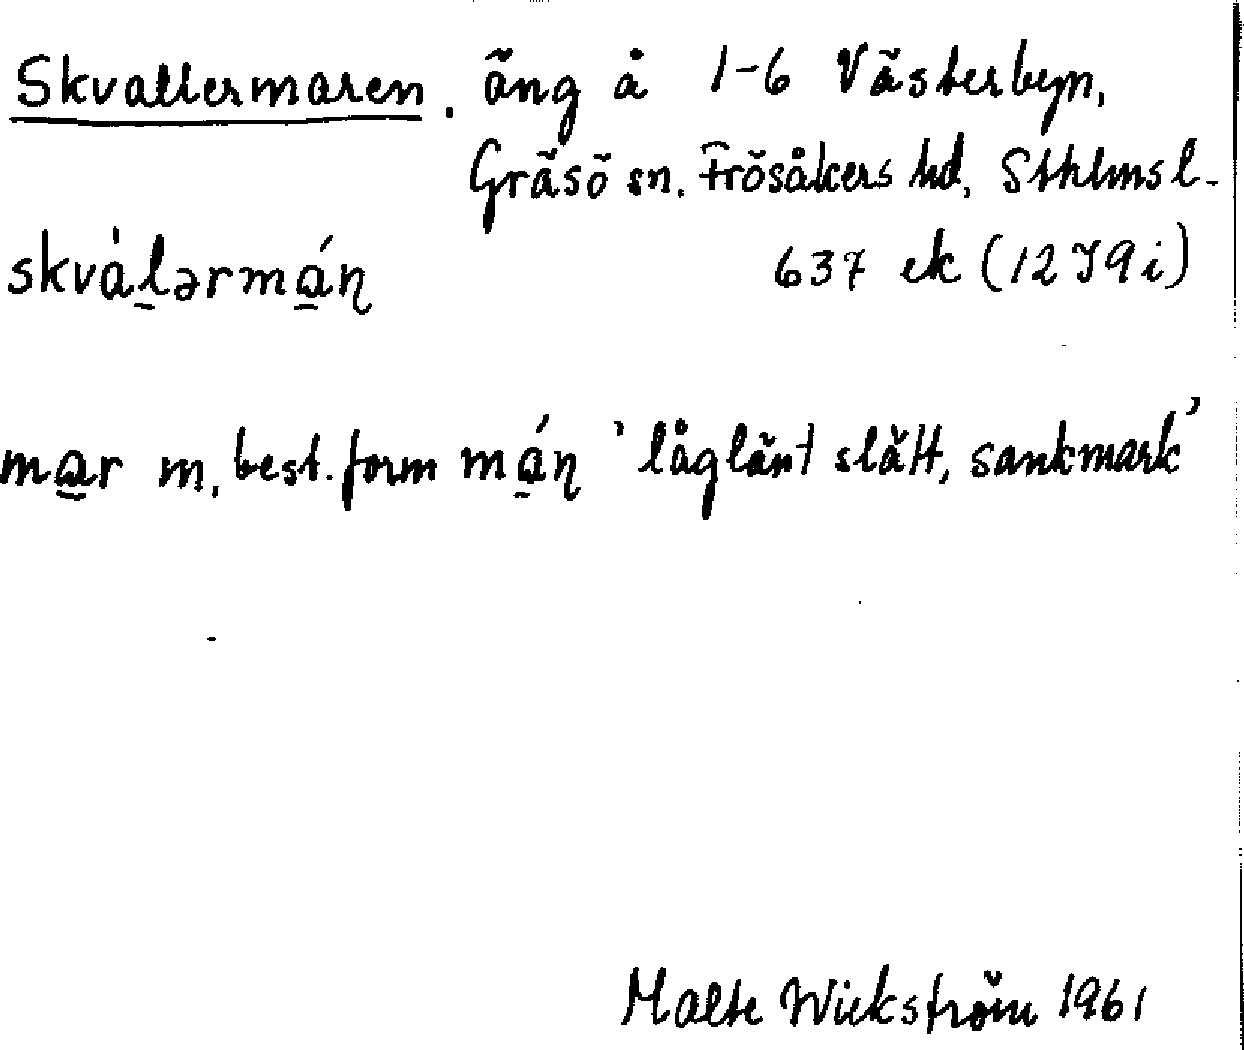 Skvallermaren. äng å 1-6 Västerbyn,
Gräsö sn. Frösåkers hd, Sthlms l.
skvàl̠ərmá̠ɳ 637 ek (12I9i)
ma̠r m, best. form má̠ɳ 'låglänt slätt, sankmark'
Malte Wickström 1961